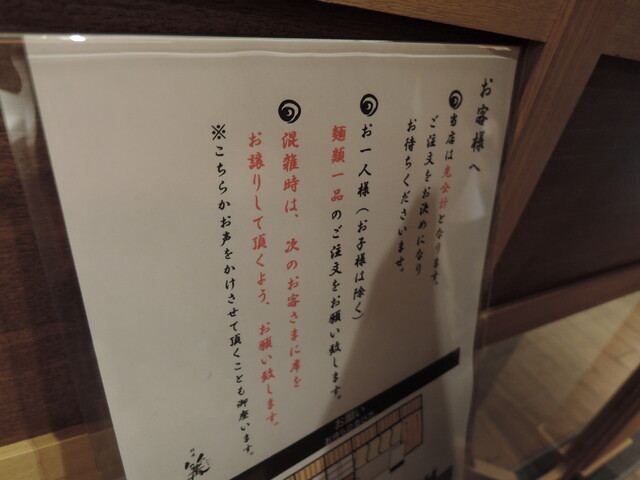 お客様へ
当店は先会計となります。
ご注文をお決めになり
お待ちくださいませ。
お一人様(お子様は除く)
麺類一品のご注文をお願い致します。
混雑時は、次のお客さまに席を
お譲りして頂くよう、お願い致します。
※こちらかお声をかけさせて頂くことも御座います。
お願い